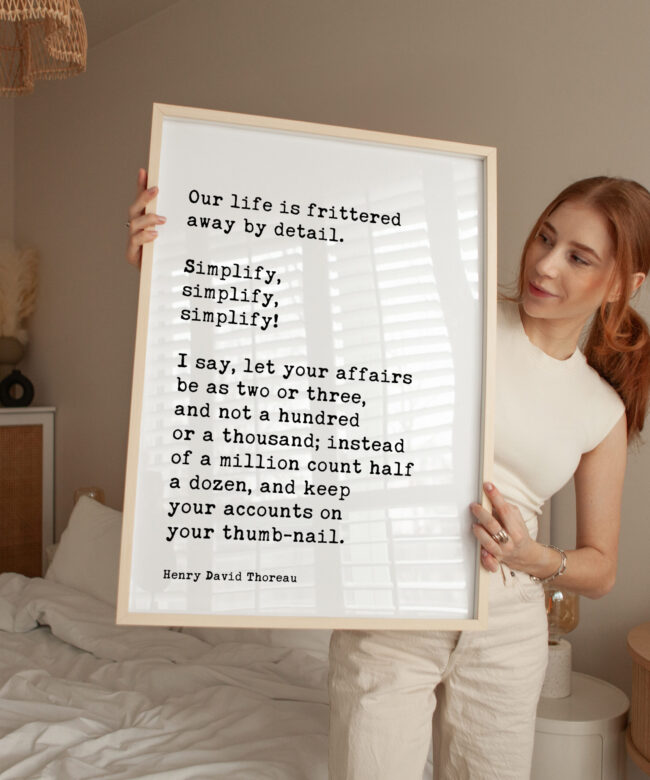 Our life is frittered
away by detail.
Simplify,
simplify,
simplify!
I say, let your affairs
be as two or three,
and not a hundred
or a thousand; instead
of a million count half
a dozen, and keep
your accounts on
your thumb-nail.
Henry David Thoreau